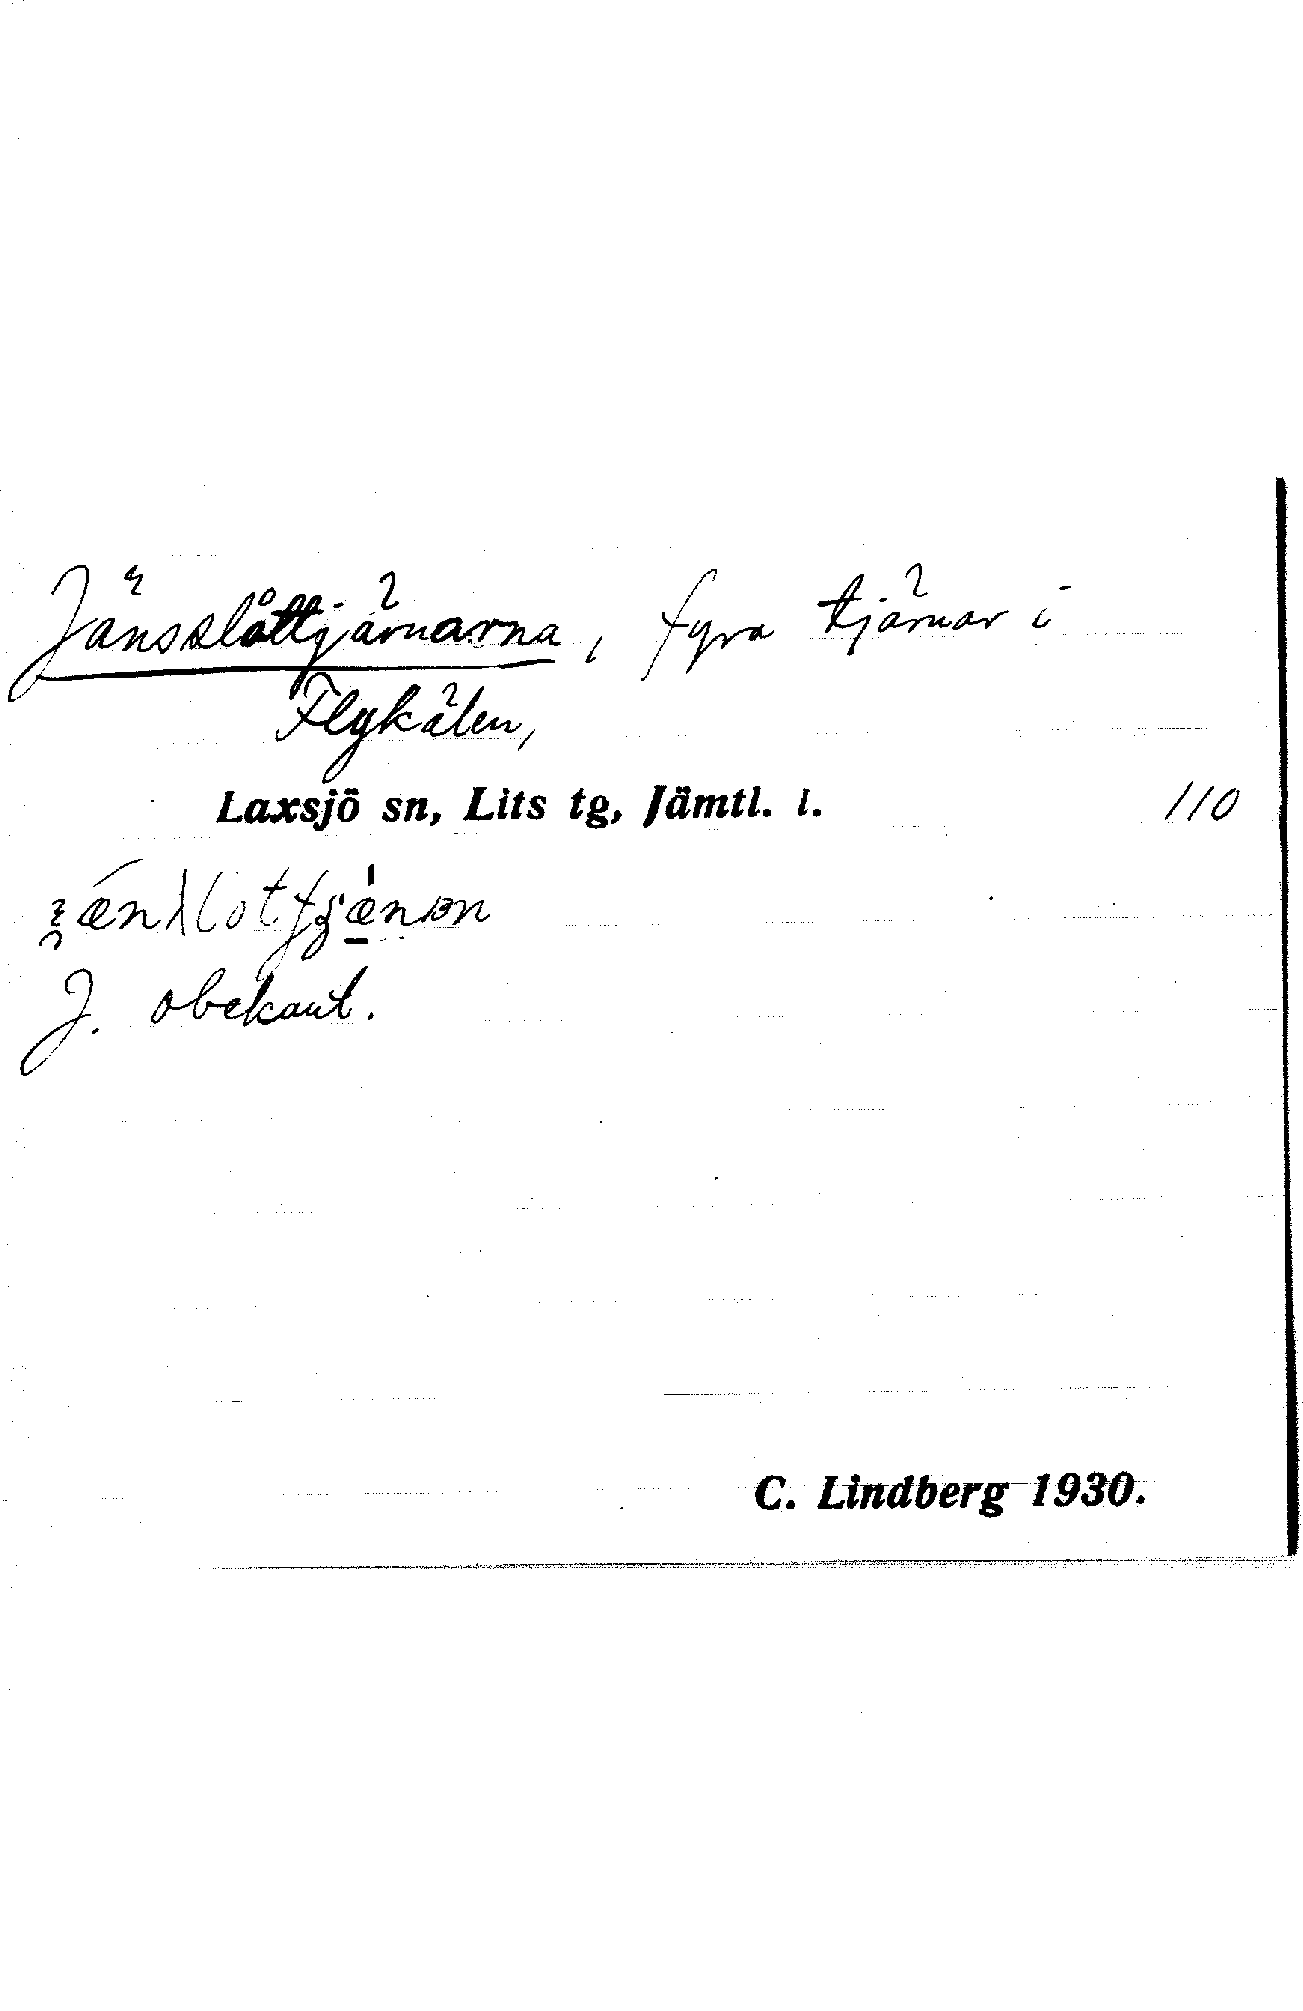 Jänsslåttjärnarna, fyra tjärnar i
Flykälen,
Laxsjö sn, Lits tg, Jämtl. l. 110
J. obekant.
C. Lindberg 1930.